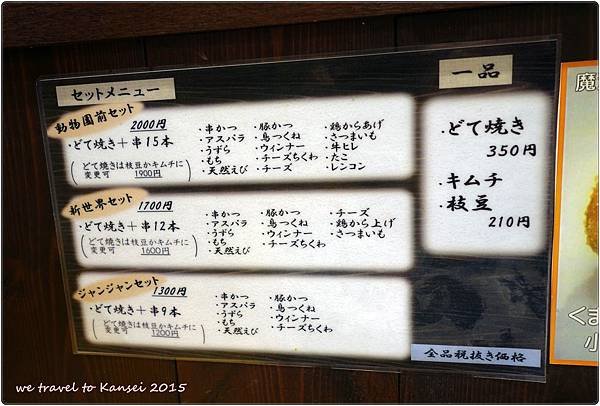 セットメニュー
動物園前セット
2000円
・どて焼き＋串15本
(どて焼きは枝豆かキムチに
変更可 1900円)
・串かつ ・豚かつ ・鶏からあげ
・アスパラ ・鳥つくね ・さつまいも
・うずら ・ウィンナー ・牛ヒレ
・もち ・チーズちくわ ・たこ
・天然えび ・チーズ ・レンコン
新世界セット
1700円
・どて焼き＋串12本
(どて焼きは枝豆かキムチに
変更可 1600円)
・串かつ ・豚かつ ・チーズ
・アスパラ ・鳥つくね ・鶏から上げ
・うずら ・ウィンナー ・さつまいも
・もち ・チーズちくわ
・天然えび
ジャンジャンセット
1300円
・どて焼き＋串9本
(どて焼きは枝豆かキムチに
変更可 1200円)
・串かつ ・豚かつ
・アスパラ ・鳥つくね
・うずら ・ウィンナー
・もち ・チーズちくわ
・天然えび
一品
・どて焼き
350円
・キムチ
・枝豆
210円
全品税抜き価格
魔
くま
小
we travel to Kansei 2015